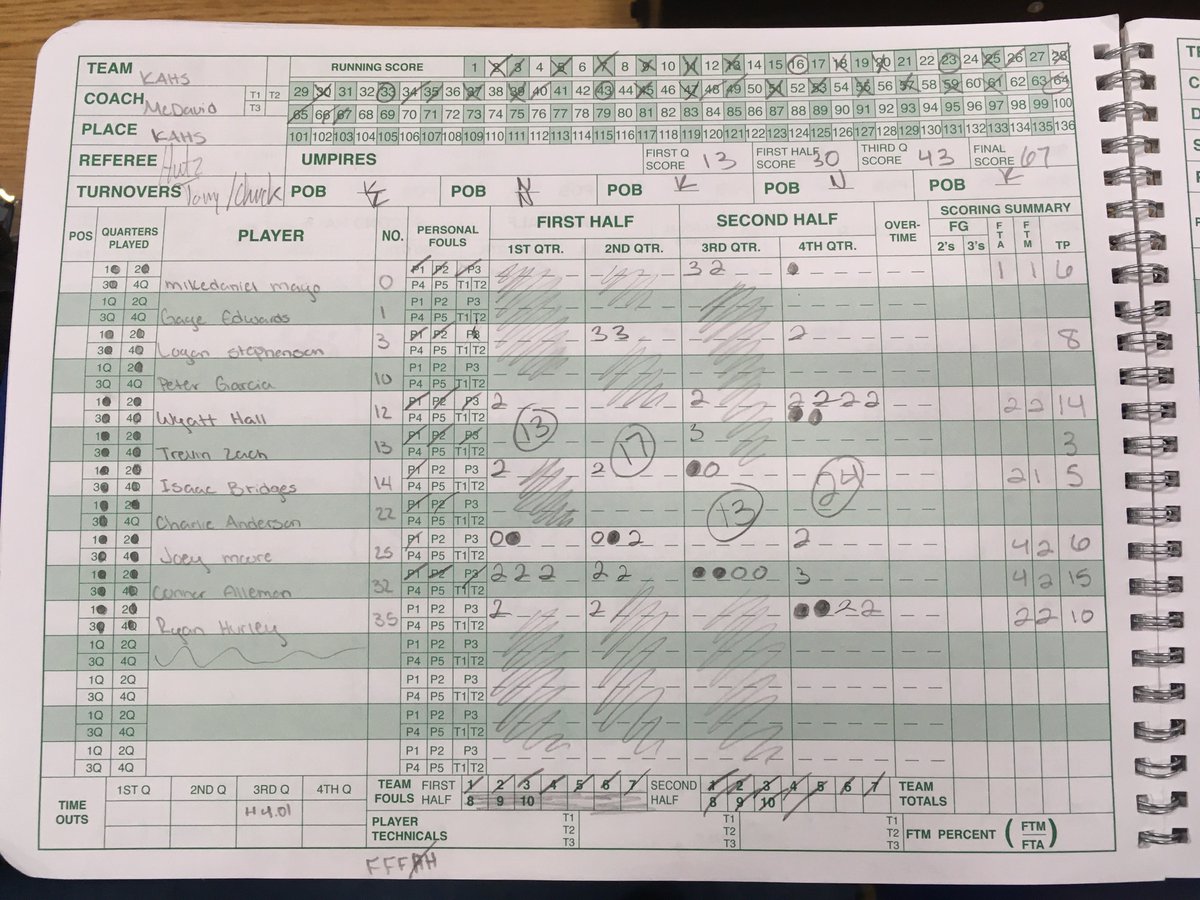 TEAM KAHS RUNNING SCORE 1 2 3 4 5 6 7 8 9 10 11 12 13 14 15 16 17 18 19 20 21 22 23 24 25 26 27 28
COACH McDavid T1 T2 T3 29 30 31 32 33 34 35 36 37 38 39 40 41 42 43 44 45 46 47 48 49 50 51 52 53 54 55 56 57 58 59 60 61 62 63 64
65 66 67 68 69 70 71 72 73 74 75 76 77 78 79 80 81 82 83 84 85 86 87 88 89 90 91 92 93 94 95 96 97 98 99 100
PLACE KAHS 101 102 103 104 105 106 107 108 109 110 111 112 113 114 115 116 117 118 119 120 121 122 123 124 125 126 127 128 129 130 131 132 133 134 135 136
REFEREE Hutz UMPIRES FIRST Q SCORE 13 FIRST HALF SCORE 30 THIRD Q SCORE 43 FINAL SCORE 67
TURNOVERS Tony/Chuck POB K POB N POB K POB N POB K
POS QUARTERS PLAYED PLAYER NO. PERSONAL FOULS FIRST HALF SECOND HALF OVER-TIME SCORING SUMMARY
1ST QTR. 2ND QTR. 3RD QTR. 4TH QTR. FG 2's 3's FTA FTM TP
1Q 2Q 3Q 4Q mikedaniel mayo 0 P1 P2 P3 P4 P5 T1 T2 3 2 1 1 6
1Q 2Q 3Q 4Q Gage Edwards 1 P1 P2 P3 P4 P5 T1 T2
1Q 2Q 3Q 4Q Logan Stephenson 3 P1 P2 P3 P4 P5 T1 T2 3 3 2 8
1Q 2Q 3Q 4Q Peter Garcia 10 P1 P2 P3 P4 P5 T1 T2
1Q 2Q 3Q 4Q Wyatt Hall 12 P1 P2 P3 P4 P5 T1 T2 2 2 2 2 2 2 2 2 14
1Q 2Q 3Q 4Q Trevin Zach 13 P1 P2 P3 P4 P5 T1 T2 13 17 3 3
1Q 2Q 3Q 4Q Isaac Bridges 14 P1 P2 P3 P4 P5 T1 T2 2 2 0 24 2 1 5
1Q 2Q 3Q 4Q Charlie Anderson 22 P1 P2 P3 P4 P5 T1 T2 13
1Q 2Q 3Q 4Q Joey moore 25 P1 P2 P3 P4 P5 T1 T2 0 0 2 2 4 2 6
1Q 2Q 3Q 4Q Conner Alleman 32 P1 P2 P3 P4 P5 T1 T2 2 2 2 2 2 0 0 3 4 2 15
1Q 2Q 3Q 4Q Ryan Hurley 35 P1 P2 P3 P4 P5 T1 T2 2 2 2 2 2 2 10
1Q 2Q 3Q 4Q P1 P2 P3 P4 P5 T1 T2
1Q 2Q 3Q 4Q P1 P2 P3 P4 P5 T1 T2
1Q 2Q 3Q 4Q P1 P2 P3 P4 P5 T1 T2
1Q 2Q 3Q 4Q P1 P2 P3 P4 P5 T1 T2
TIME OUTS 1ST Q 2ND Q 3RD Q 4TH Q TEAM FOULS FIRST HALF 1 2 3 4 5 6 7 8 9 10 SECOND HALF 1 2 3 4 5 6 7 8 9 10 TEAM TOTALS
H 4.01
PLAYER TECHNICALS T1 T2 T3 T1 T2 T3 T1 T2 T3 FTM PERCENT (FTM FTA)
FFFHH